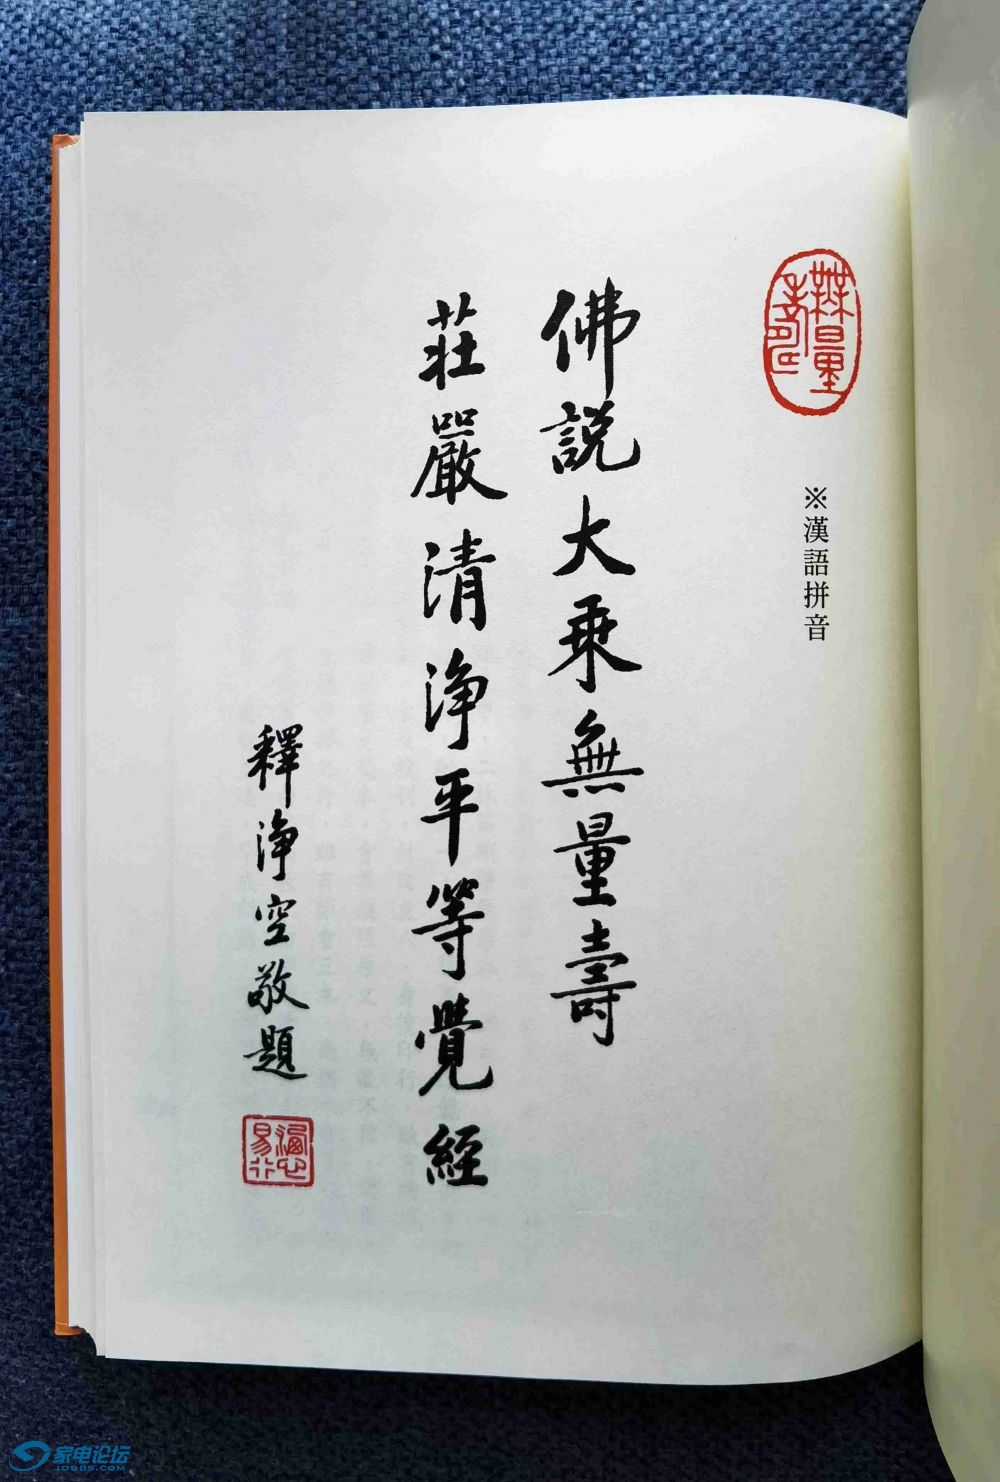 ※漢語拼音
佛説大乘無量壽
莊嚴清淨平等覺經
釋淨空敬題
家电论坛
JD-BBS.COM